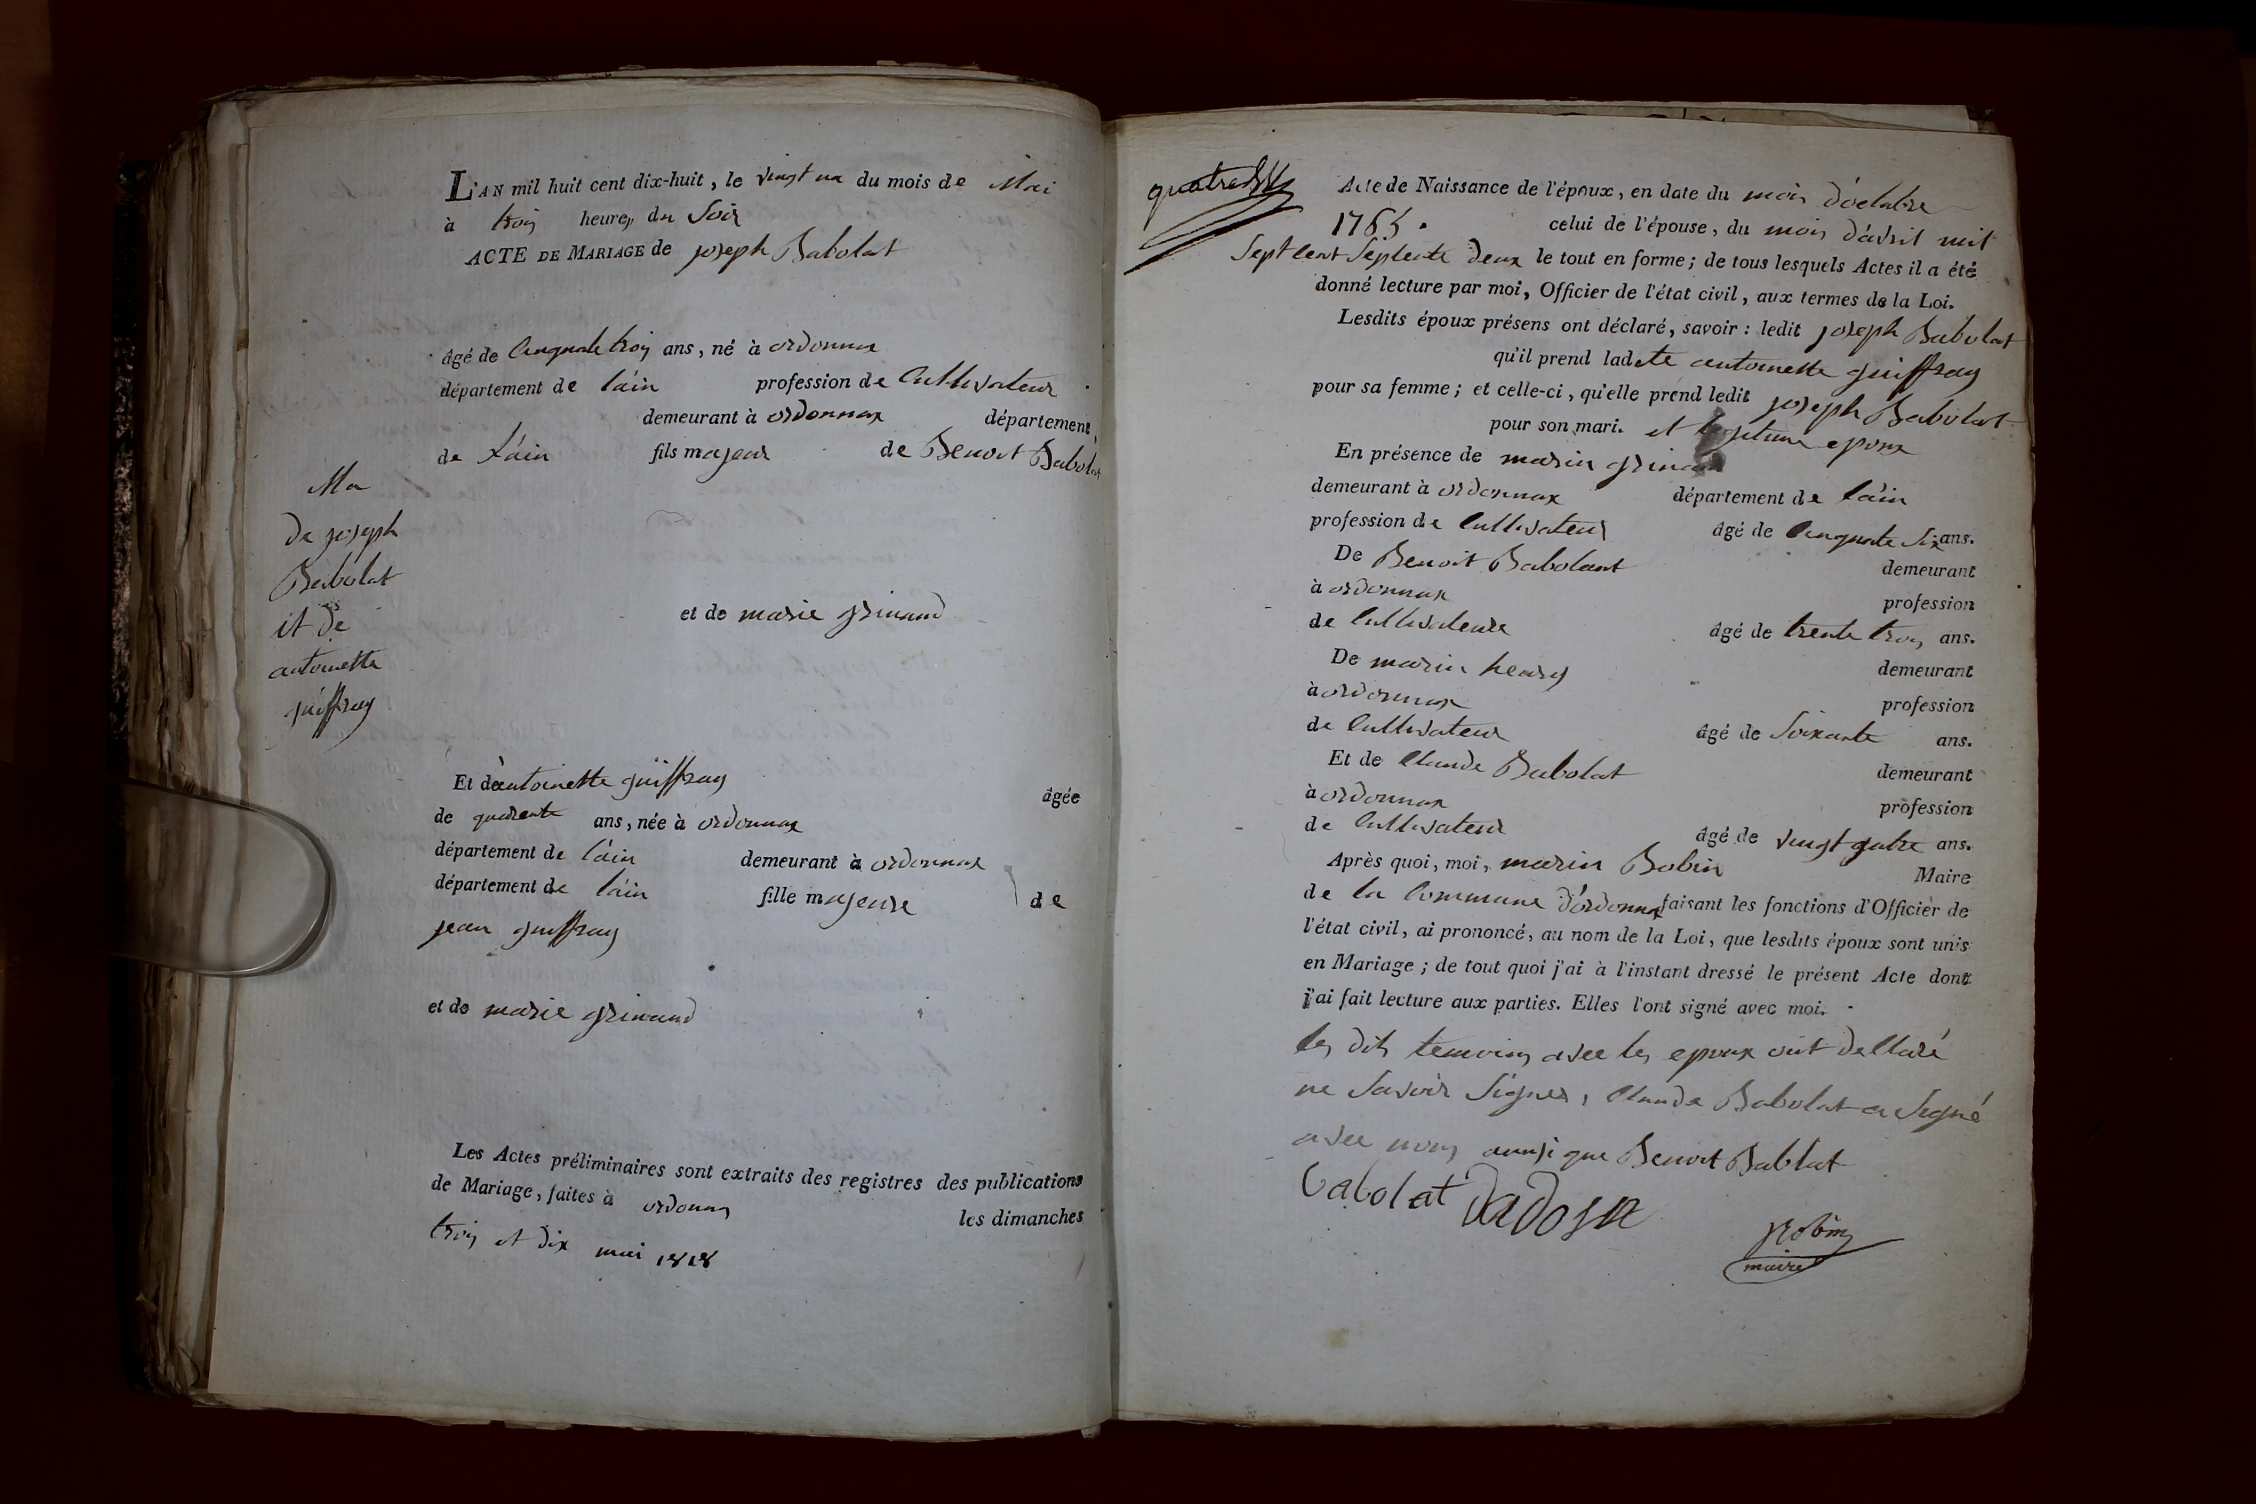 L'AN mil huit cent dix-huit, le vingt un du mois de Mai
à trois heures du Soir
ACTE DE MARIAGE de joseph Babolat
âgé de Cinquate trois ans, né à ordonnax
département de l'ain profession de Cultivateur
demeurant à ordonnax département
de l'ain fils majeur de Benoit Babolat
Ma
de joseph
Babolat
et de
antoinette
guiffray
et de marie grinand
Et de antoinette guiffray âgée
de quarente ans, née à ordonnax
département de l'ain demeurant à ordonnax
département de l'ain fille majeure de
jean guiffray
et de marie grinand
Les Actes préliminaires sont extraits des registres des publications
de Mariage, faites à ordonnax les dimanches
trois et dix mai 1818
Acte de Naissance de l'époux, en date du mois d'octobre
1765. celui de l'épouse, du mois d'avril mil
Sept Cent Septente deux le tout en forme; de tous lesquels Actes il a été
donné lecture par moi, Officier de l'état civil, aux termes de la Loi.
Lesdits époux présens ont déclaré, savoir: ledit joseph Babolat
qu'il prend ladite antoinette guiffray
pour sa femme; et celle-ci, qu'elle prend ledit joseph Babolat
pour son mari. et legitime epoux
En présence de marin grinand
demeurant à ordonnax département de l'ain
profession de Cultivateur âgé de Cinquate Six ans.
De Benoit Babolat demeurant
à ordonnax profession
de Cultivateur âgé de trente trois ans.
De marin henry demeurant
à ordonnax profession
de Cultivateur âgé de Soixante ans.
Et de Claude Babolat demeurant
à ordonnax profession
de Cultivateur âgé de vingt quatre ans.
Après quoi, moi, marin Robin Maire
de la Commune d'ordonnax faisant les fonctions d'Officier de
l'état civil, ai prononcé, au nom de la Loi, que lesdits époux sont unis
en Mariage; de tout quoi j'ai à l'instant dressé le présent Acte dont
j'ai fait lecture aux parties. Elles l'ont signé avec moi.
les dits temoins avec les epoux ont declaré
ne Savoir Signer, Claude Babolat a Signé
avec nous ainsi que Benoit Bablat
Babolat
Robin
maire